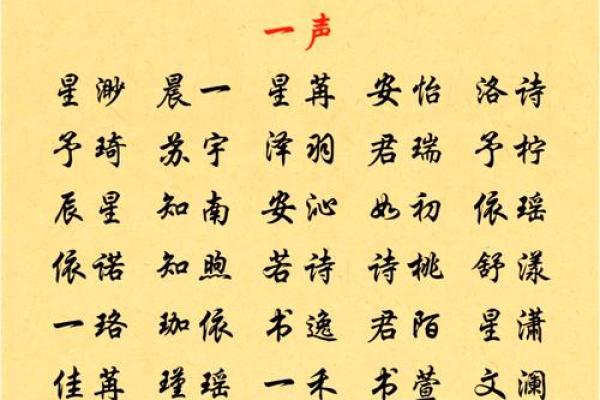 一声
星渺 晨一 星苒 安怡 洛诗
予琦 苏宇 泽羽 君瑞 予柠
辰星 知南 安沁 如初 依瑶
依诺 知煦 若诗 诗桃 舒漾
一珞 珈依 书逸 君陌 星潇
佳苒 瑾瑶 一禾 书萱 文澜